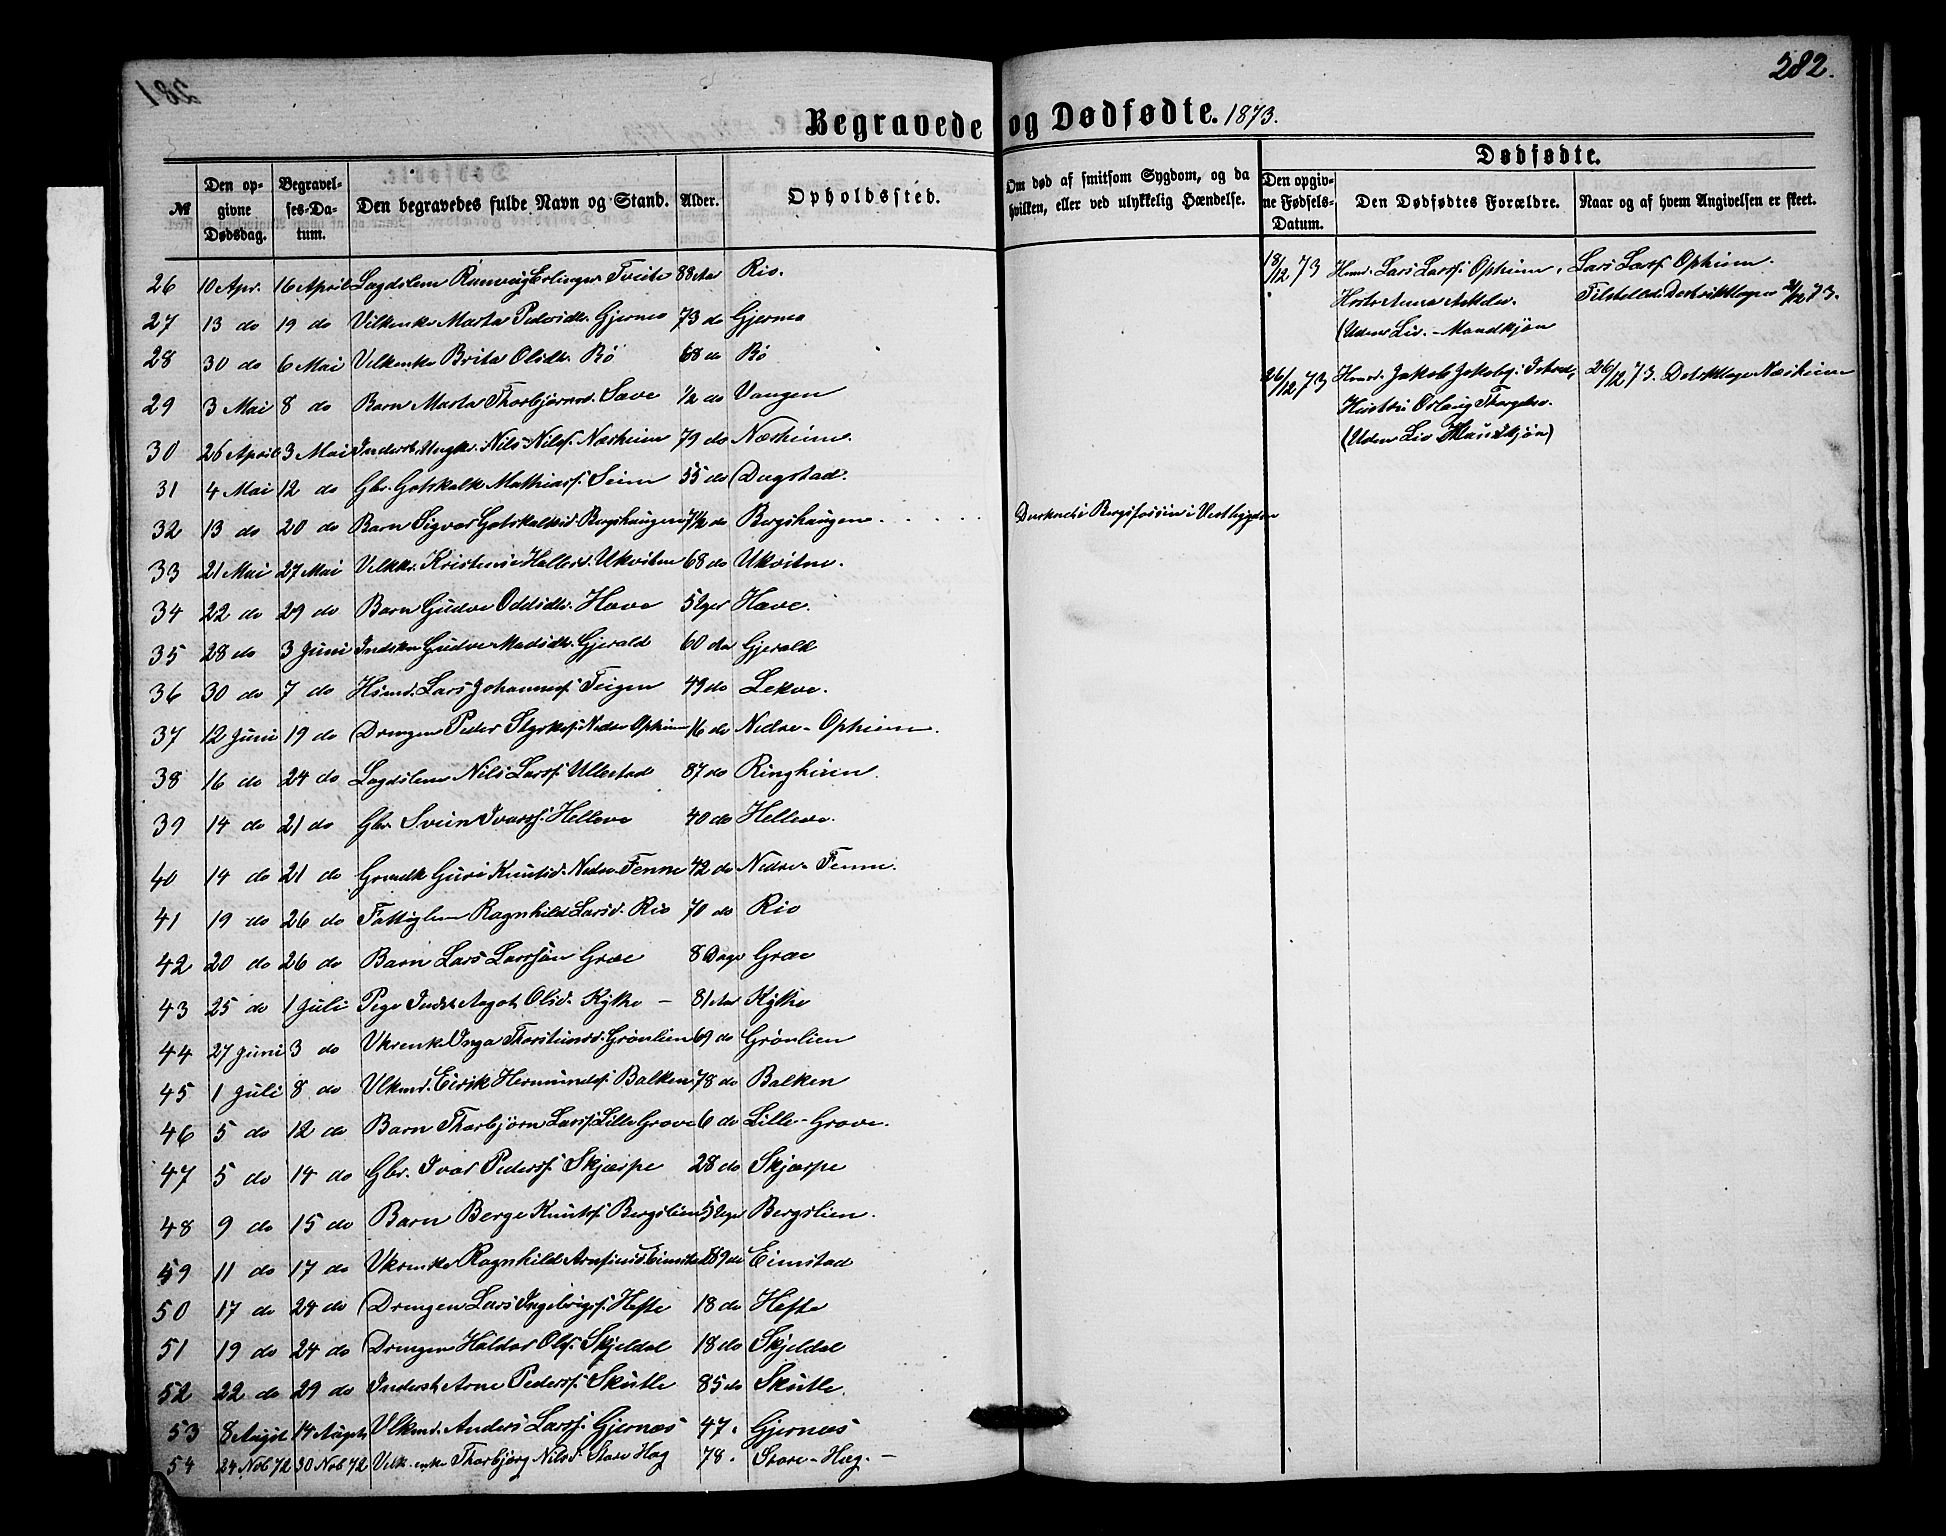 282.
Begravede og Dødfødte. 1873.
№
Den opgivne Dødsdag.
Begravelses-Datum.
Den begravedes fulde Navn og Stand.
Alder.
Opholdssted.
Om død af smitsom Sygdom, og da hvilken, eller ved ulykkelig Hændelse.
Dødfødte.
Den opgivne Fødsels-Datum.
Den Dødfødtes Forældre.
Naar og af hvem Angivelsen er skeet.
26 10 Apr. 16 April Lægdslem Ranveig Erlingsd. Tveite 88 Aar Rio.
27 13 do 19 do Vilkenke Marta Pedersdtr. Gjernes 73 do Gjernes
28 30 do 6 Mai Vilkenke Brita Olsdtr. Rö 68 do Rö
29 3 Mai 8 do Barn Marta Thorbjørnsd. Sæve 1/2 do Vangen
30 26 April 3 Mai Inderst Ungkr. Nils Nilsf. Næsheim 79 do Næsheim
31 4 Mai 12 do Gbr. Gotskalk Mathiasf. Seim 55 do Dugstad.
32 13 do 20 do Barn Sigvor Gotskalksd. Bergshaugen 7 1/2 do Bergshaugen. Druknet i Bergsfossen i Vestbygden
33 21 Mai 27 Mai Velkke. Kristense Hallesd. Ukvitne 68 do Ukvitne.
34 22 do 29 do Barn Gudve Oddsdtr. Hæve 5 Uger Hæve.
35 28 do 3 Juni Indske Gudve Madsdtr. Gjerald 60 Aar Gjerald
36 30 do 7 do Hsmd. Lars Johannesf. Teigen 49 do Lekve.
37 12 Juni 19 do Drengen Peder Styrksf. Nedre Opheim 16 do Nedre-Opheim.
38 16 do 24 do Lægdslem Nils Larsf. Ullestad 87 do Ringheim.
39 14 do 21 do Gbr. Svein Ivarsf. Helleve 40 do Helleve.
40 14 do 21 do Grmdk Guri Knutsd. Nedre Fenne 42 do Nedre-Fenne.
41 19 do 26 do Fattiglem Ragnhild Larsd. Rio 70 do Rio
42 20 do 26 do Barn Lars Larssøn Græe 8 Dage Græe
43 25 do 1 Juli Pige Indst Aagot Olsd. Kyke – 81 Aar Kyke
44 27 Juni 3 do Vkrenke Inga Thorsteinsd. Grønlien 69 do Grønlien
45 1 Juli 8 do Vlkmd. Eirik Hermundsf. Balken 78 do Balken
46 5 do 12 do Barn Thorbjørn Larsf. Lille Grove 6 do Lille-Grove.
47 5 do 14 do Gbr. Ivar Pedersf. Skjærpe 28 do Skjærpe
48 9 do 15 do Barn Berge Knutsf. Bergslien 5 Uger Bergslien.
59 11 do 17 do Vkrenke Ragnhild Arnfinsd. Eimstad 89 do Eimstad
50 17 do 24 do Drengen Lars Ingebrigtsf. Hefte 18 do Hefte
51 19 do 24 do Drengen Haldor Olsf. Skjeldal 18 do Skjeldal
52 22 do 29 do Inderst Arne Pedersf. Skutle 85 do Skutle.
53 8 Augst 14 Augst Vlkmd. Anders Larsf. Gjernæs 47. Gjernæs
54 24 Nob 72 30 Nob 72 Velk.enke Thorbjørg Nilsd. Store Hæg 78. Store-Hæg. –
18/12 73 Hsmd. Lars Larsf. Opheim. Lars Larsf. Opheim.
Hustr Anna Askelsd. Tilstelled Destriktlægen 21/12 73.
(Uden Liv. – Mandkjøn
26/12 73 Hsmd. Jakob Jakobsf. 26/12 73. Distriktlæge Næsheim
Hustru Oslaug
(Uden Liv Mandkjøn)